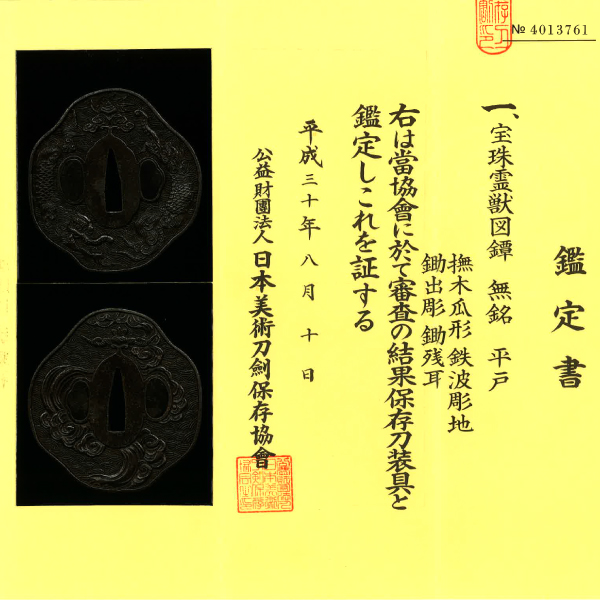 № 4013761
鑑定書
一、宝珠霊獣図鐔 無銘 平戸
撫木瓜形 鉄波彫地
鋤出彫 鋤残耳
右は當協會に於て審査の結果保存刀装具と
鑑定しこれを証する
平成三十年八月十日
公益財團法人日本美術刀劍保存協會